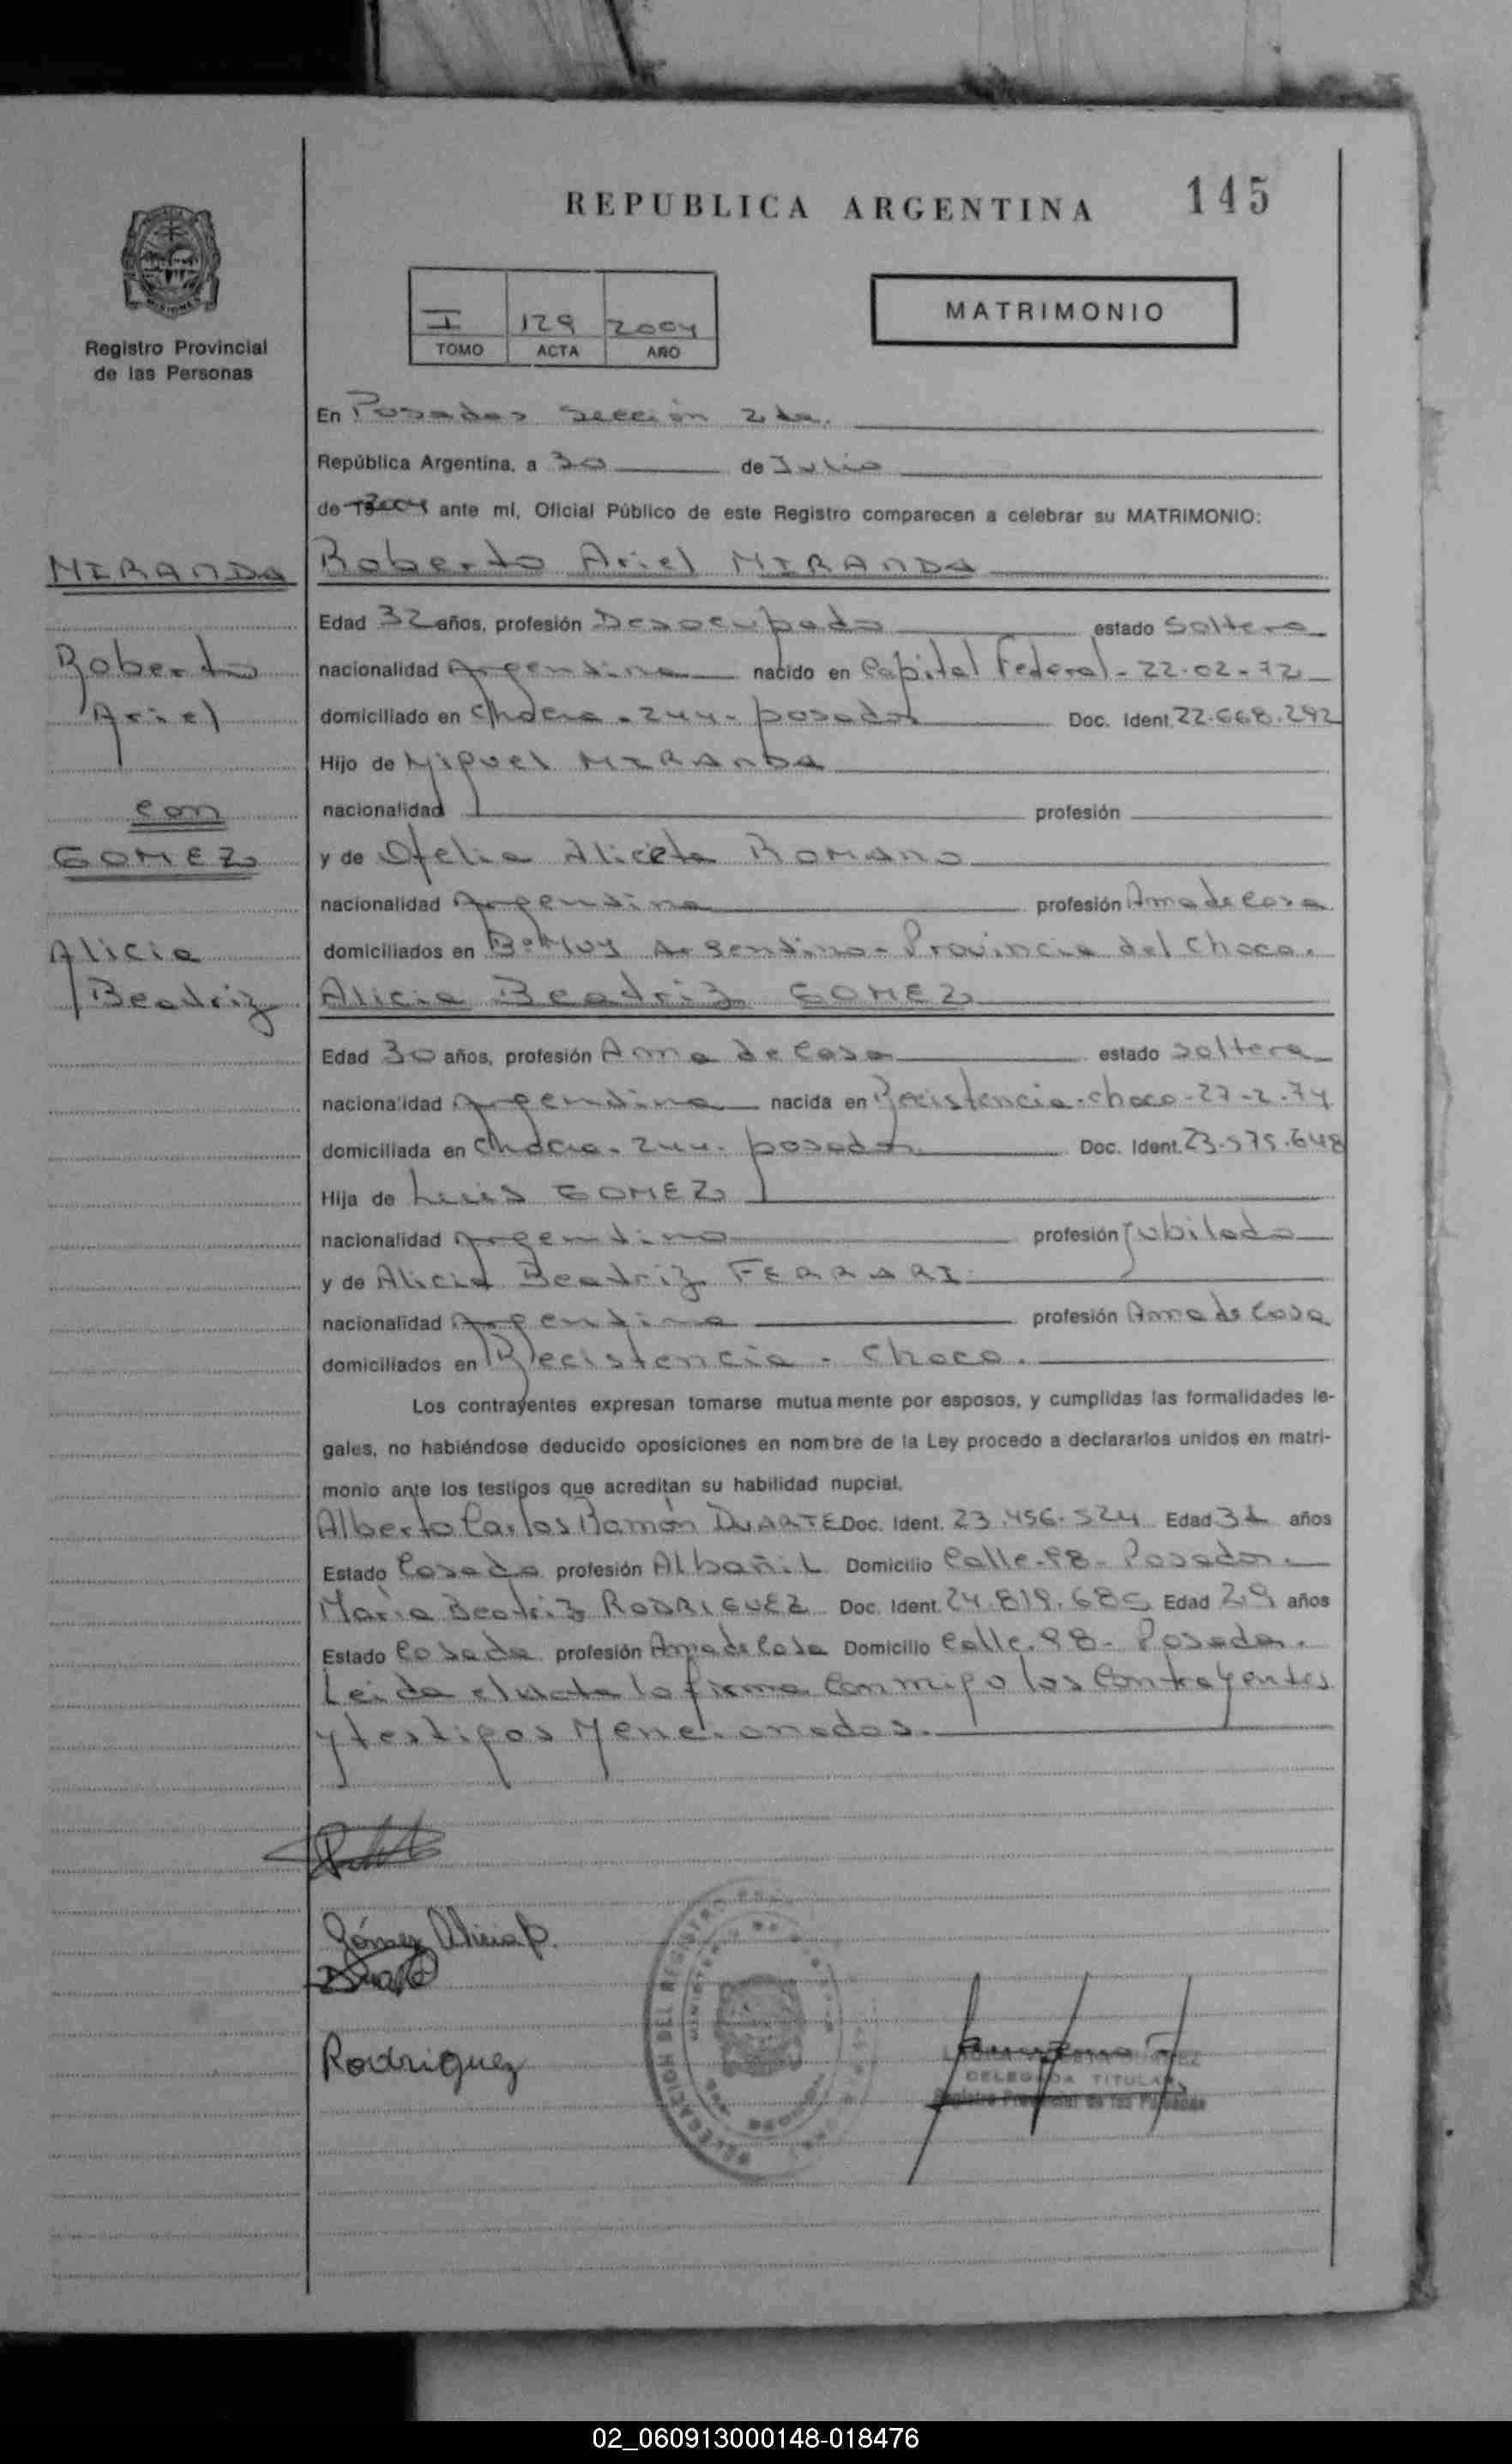 REPUBLICA ARGENTINA 145
MISIONES
Registro Provincial
de las Personas
I 129 2004
TOMO ACTA AÑO
MATRIMONIO
En Posadas Sección 2da.
República Argentina, a 30 de Julio
de 2004 ante mí, Oficial Público de este Registro comparecen a celebrar su MATRIMONIO:
MIRANDA
Roberto
Ariel
con
GOMEZ
Alicia
Beatriz
Roberto Ariel MIRANDA
Edad 32 años, profesión Desocupado estado Soltero
nacionalidad Argentina nacido en Capital Federal - 22-02-72
domiciliado en Chacra - 244 - posadas Doc. Ident. 22.668.292
Hijo de Miguel MIRANDA
nacionalidad profesión
y de Ofelia Aliceta ROMANO
nacionalidad Argentina profesión Ama de Casa
domiciliados en B° Argentino - Provincia del Chaco.
Alicia Beatriz GOMEZ
Edad 30 años, profesión Ama de Casa estado soltera
nacionalidad Argentina nacida en Recistencia - chaco - 27-2-74
domiciliada en Chacra - 244 - posadas Doc. Ident. 23.575.648
Hija de Luis GOMEZ
nacionalidad Argentino profesión jubilado
y de Alicia Beatriz FERRARI
nacionalidad Argentina profesión Ama de Casa
domiciliados en Recistencia - Chaco.
Los contrayentes expresan tomarse mutuamente por esposos, y cumplidas las formalidades le-
gales, no habiéndose deducido oposiciones en nombre de la Ley procedo a declararlos unidos en matri-
monio ante los testigos que acreditan su habilidad nupcial.
Alberto Carlos Ramón DUARTE Doc. Ident. 23.456.524 Edad 31 años
Estado Casado profesión Albañil Domicilio Calle - 98 - Posadas.
María Beatriz RODRIGUEZ Doc. Ident. 24.819.685 Edad 29 años
Estado Casada profesión Ama de Casa Domicilio Calle. 98 - Posadas.
Leida el acta la firma Conmigo los Contrayentes
y testigos Mencionados.
Gómez Alicia B.
Duarte
Rodriguez
DELEGACION DEL REGISTRO
DELEGADA TITULAR
Registro Provincial de las Personas
02_060913000148-018476